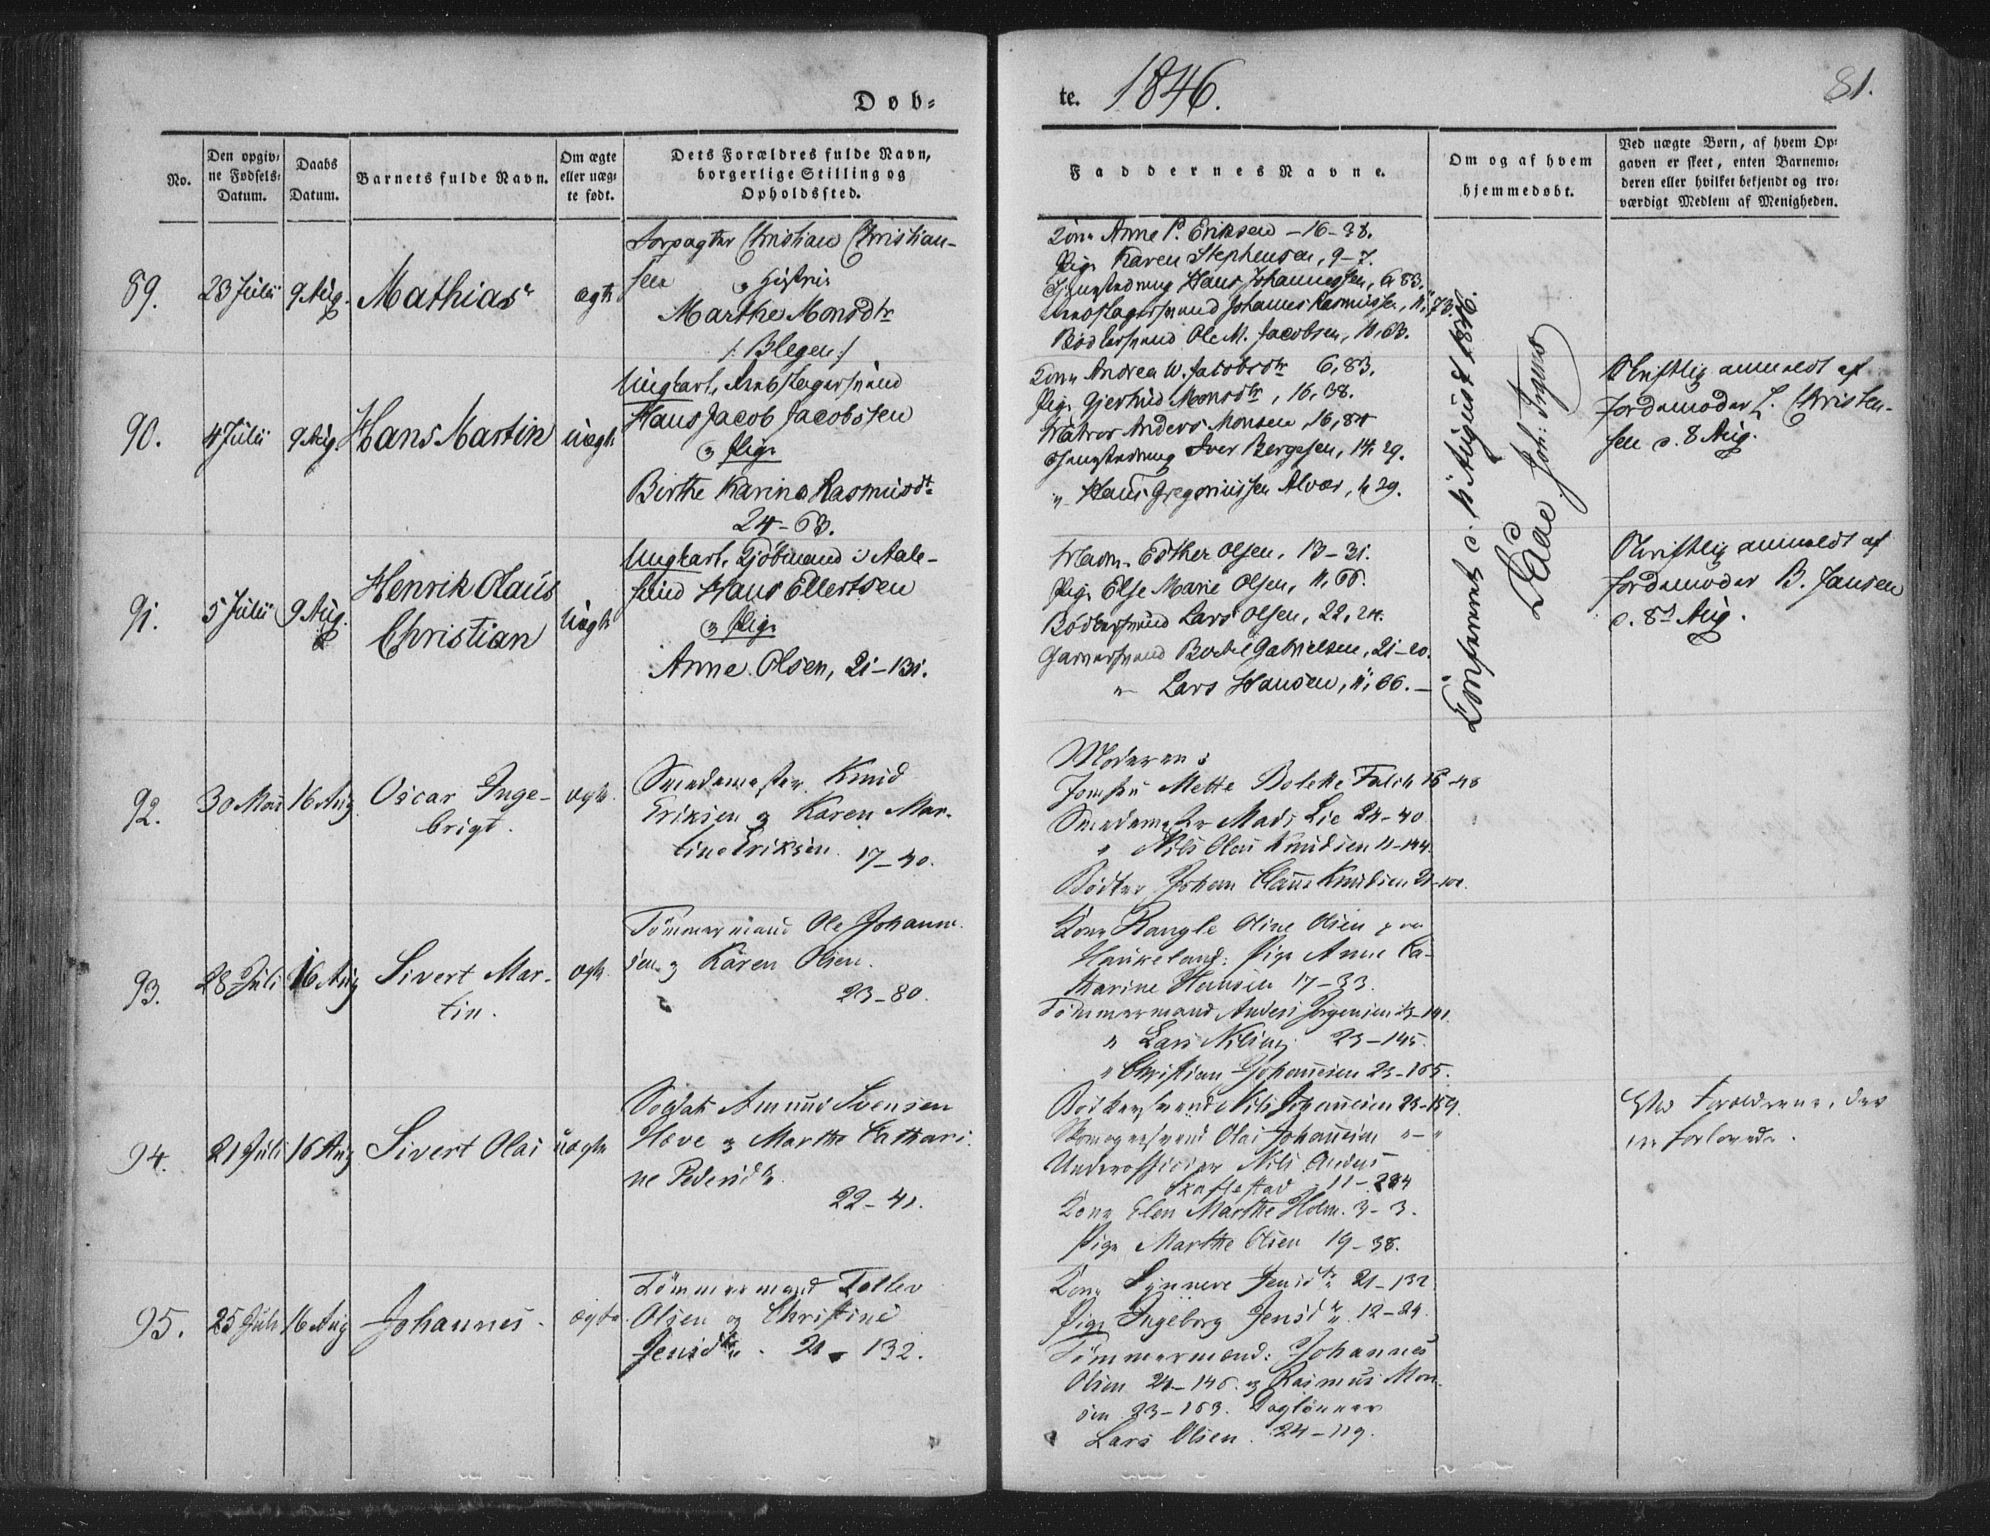 Døb=
te. 1846.
81.
No.
Den opgiv=
ne Fødsels=
Datum.
Daabs
Datum.
Barnets fulde Navn.
Om ægte
eller uæg=
te født.
Dets Forældres fulde Navn,
borgerlige Stilling og
Opholdssted.
Faddernes Navne.
Om og af hvem
hjemmedøbt.
Ved uægte Børn, af hvem Op=
gaven er skeet, enten Barnemo=
deren eller hvilket bekjendt og tro=
værdigt Medlem af Menigheden.
89.
23 Julii
9 Aug.
Mathias
ægte
Forpagter Christian Christian-
sen og Hustrue
Marthe Monsdtr
/: Blegen :/
Kone Anne P. Eriksen - 16-38.
Pige Karen Stephensen, 9-7.
Hans Johannessen, 6, 83.
Johannes Rasmussen, 11, 73.
Bødkersvend Ole M. Jacobsen, 11, 63.
90.
4 Julii
9 Aug.
Hans Martin
uægte
Ungkarl,
Hans Jacob Jacobssen
og Pige
Birthe Karine Rasmusdtr
24-63.
Kone Andrea W. Jacobsdtr 6, 83.
Pige Gjertrud Monsdtr, 16, 38.
Anders Monsen, 16, 84
Iver Bergesen, 14, 29.
" Hans Gregoriussen Alver, 4, 29.
Skriftlig anmeldt af
Jordemoder L. Christen-
sen d. 8 Aug.
91.
5 Julii
9 Aug.
Henrik Olaus
Christian
uægte
Ungkarl, i Aale-
sund Hans Ellertsen
og Pige
Anne Olsen, 21-131.
Madm. Esther Olsen, 13-31.
Pige Else Marie Olsen, 11, 66.
Bødkersvend Lars Olsen, 22, 24.
Garversvend Bertel Gabrielsen, 21-20.
" Lars Hansen, 11, 66. -
Skriftlig anmeldt af
Jordemoder B. Jansen
d. 8d Aug.
Confereret d. 11 August 1846.
Daae Joh:
92.
30 Mai
16 Aug
Oscar Inge-
brigt.
ægte.
Smedemester Knud
Eriksen og Karen Mar-
tine Eriksen. 17-40.
Moderen:
Jomfru Mette Bolette Falch 18-48
Smedemester Mads Lie 24-40
" Nils Olai Knudsen 11-144.
Bødker Johan Claus Knudsen 21-101.
93.
28 Juli
16 Aug
Sivert Mar-
tin.
ægte.
Tømmermand Ole Johanne-
sen og Karen Olsen.
23-80.
Kone Rangle Oline Olsen paa
Haukeland: Pige Anne Ca-
tharine Hansen 17-33.
Tømmermand Anders Jørgensen 23-141.
" Lars Nilsen 23-145.
" Christian Johannesen 23-165.
94.
21 Juli
16 Aug
Sivert Olai
uægte
Soldat Amund Svensen
Hæve og Marthe Cathari-
ne Pedersdtr
22-41.
Bødkersvend Nils Johannesen 23-159.
Skomagersvend Olai Johannesen "-"
Underofficier Nils Anders
Skaftestad 11-234
Kone Elen Marthe Holm. 3-3.
Pige Marthe Olsen 19-38.
Ved Forældrene, der
ere Forlovede.
95.
25 Juli
16 Aug
Johannes.
ægte.
Tømmermand Tollev
Olsen og Christine
Jensdtr. 21-132.
Kone Synneve Jensdtr 21-132
Pige Ingeborg Jensdtr 12-24.
Tømmermænd: Johannes
Olsen 24-146. og Rasmus Mon-
sen 23-163. Dagløner
Lars Olsen. 24-119.